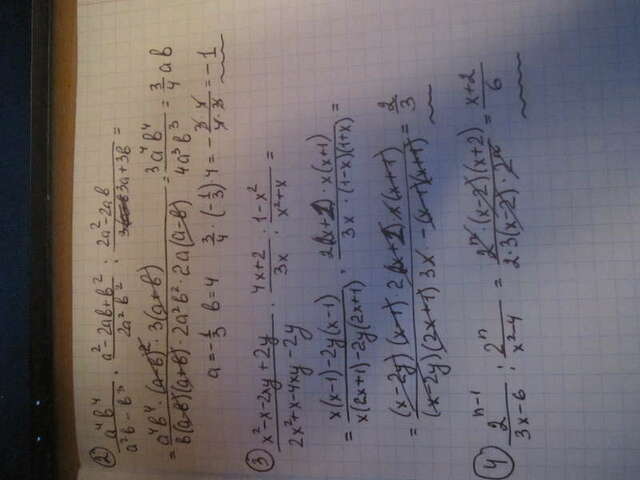 ② a⁴b⁴/(a²b - b³) · (a² - 2ab + b²)/(2a²b²) : (2a² - 2ab)/(3a + 3b) =
= (a⁴b⁴ · (a-b)² · 3(a+b))/(b(a-b)(a+b) · 2a²b² · 2a(a-b)) = 3a⁴b⁴/4a³b³ = 3/4 ab
a = -1/3 b = 4 3/4 · (-1/3) 4 = - (3 · 4)/(4 · 3) = -1
③ (x² - x - 2xy + 2y)/(2x² + x - 4xy - 2y) · (4x + 2)/3x : (1 - x²)/(x² + x) =
= (x(x-1) - 2y(x-1))/(x(2x+1) - 2y(2x+1)) · (2(2x+1) · x(x+1))/(3x · (1-x)(1+x)) =
= ((x-2y)(x-1) · 2(2x+1) x(x+1))/((x-2y)(2x+1) 3x · -(x-1)(x+1)) = 2/3
④ 2ⁿ⁻¹/(3x-6) : 2ⁿ/(x²-4) = (2ⁿ · (x-2)(x+2))/(2 · 3(x-2) · 2ⁿ) = (x+2)/6